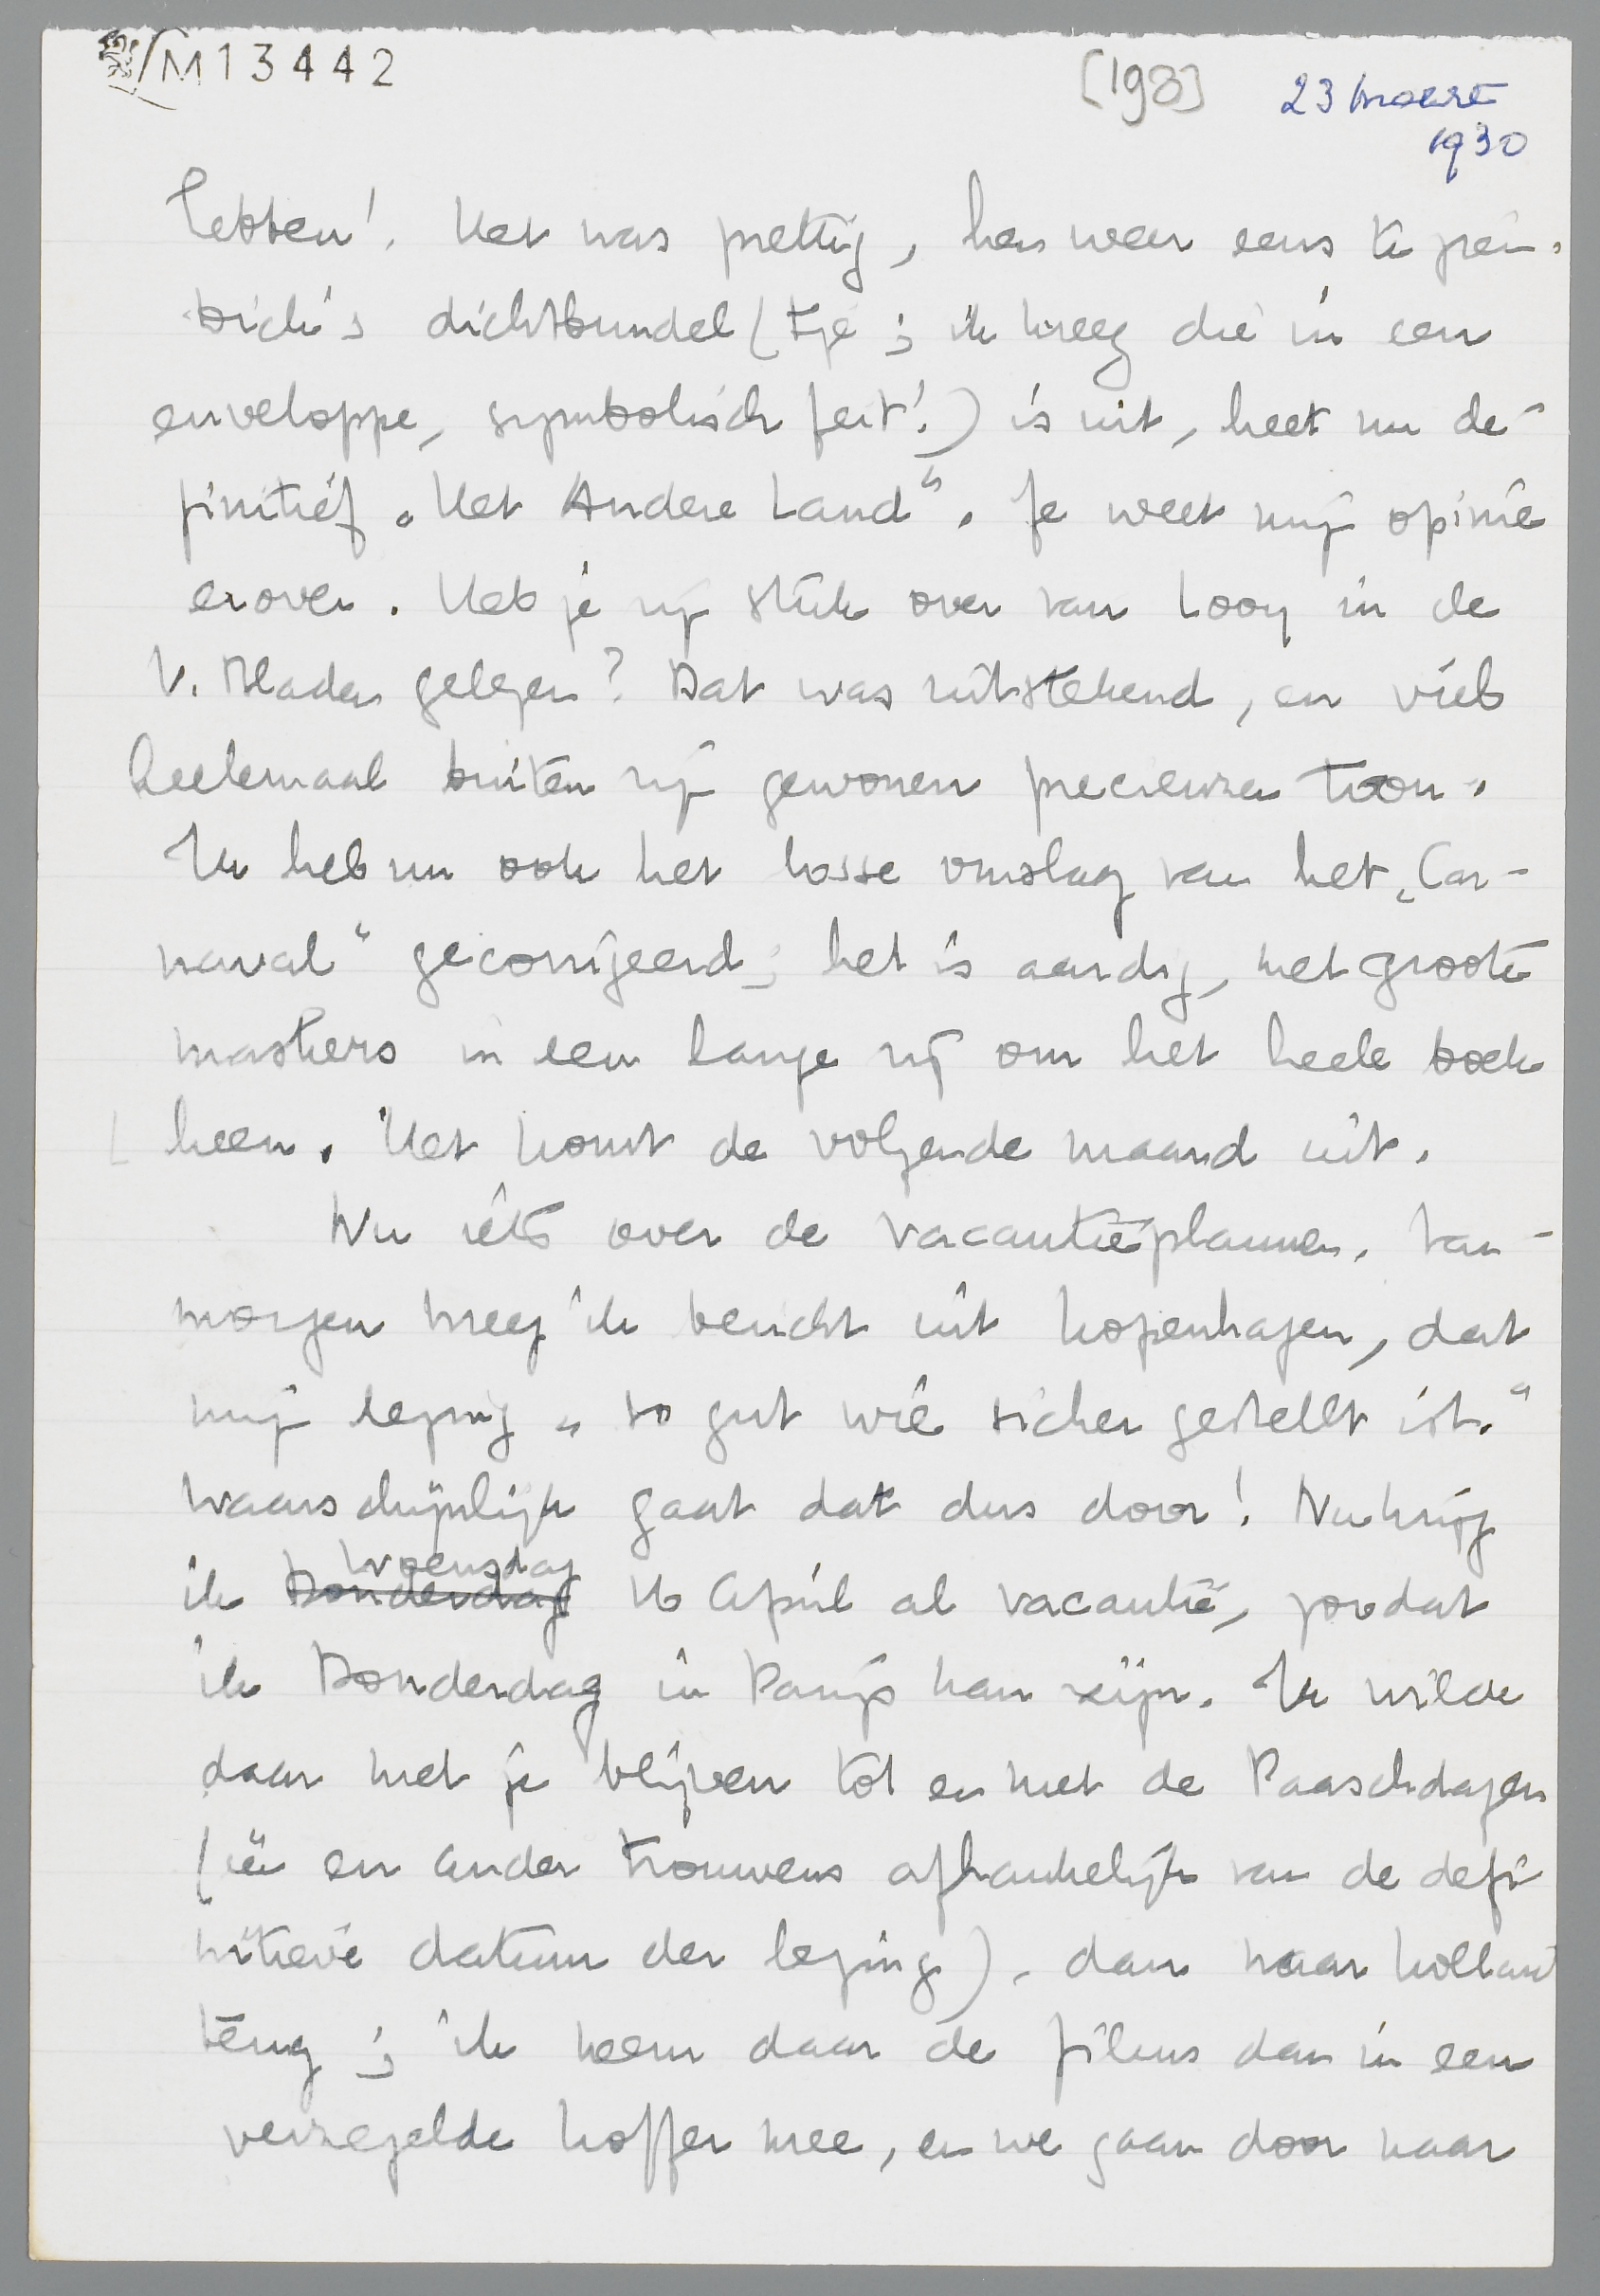 M13442
[193] 23 Maart
1930
hebben! Het was prettig, hen weer eens te zien.
Binck's dichtbundel (tje; ik kreeg die in een
enveloppe, symbolisch feit!) is uit, heet nu de-
finitief „Het Andere Land". Je weet mijn opinie
erover. Heb je zijn stuk over van Looy in de
V. Bladen gelezen? Dat was uitstekend, en viel
heelemaal buiten zijn gewonen precieuzen toon.
Ik heb nu ook het losse omslag van het „Car-
naval" gecorrigeerd; het is aardig, met groote
maskers in een lange rij om het heele boek
heen. Het komt de volgende maand uit.
Nu iets over de vacantieplannen. Van-
morgen kreeg ik bericht uit Kopenhagen, dat
mijn lezing „so gut wie sicher gestellt ist."
Waarschijnlijk gaat dat dus door! Nu krijg
ik Donderdag Woensdag 16 April al vacantie, zoodat
ik Donderdag in Parijs kan zijn. Ik wilde
daar met je blijven tot en met de Paaschdagen
(één en ander trouwens afhankelijk van de defi-
nitieve datum der lezing), dan naar Holland
terug; ik neem daar de films dan in een
verzegelde koffer mee, en we gaan door naar